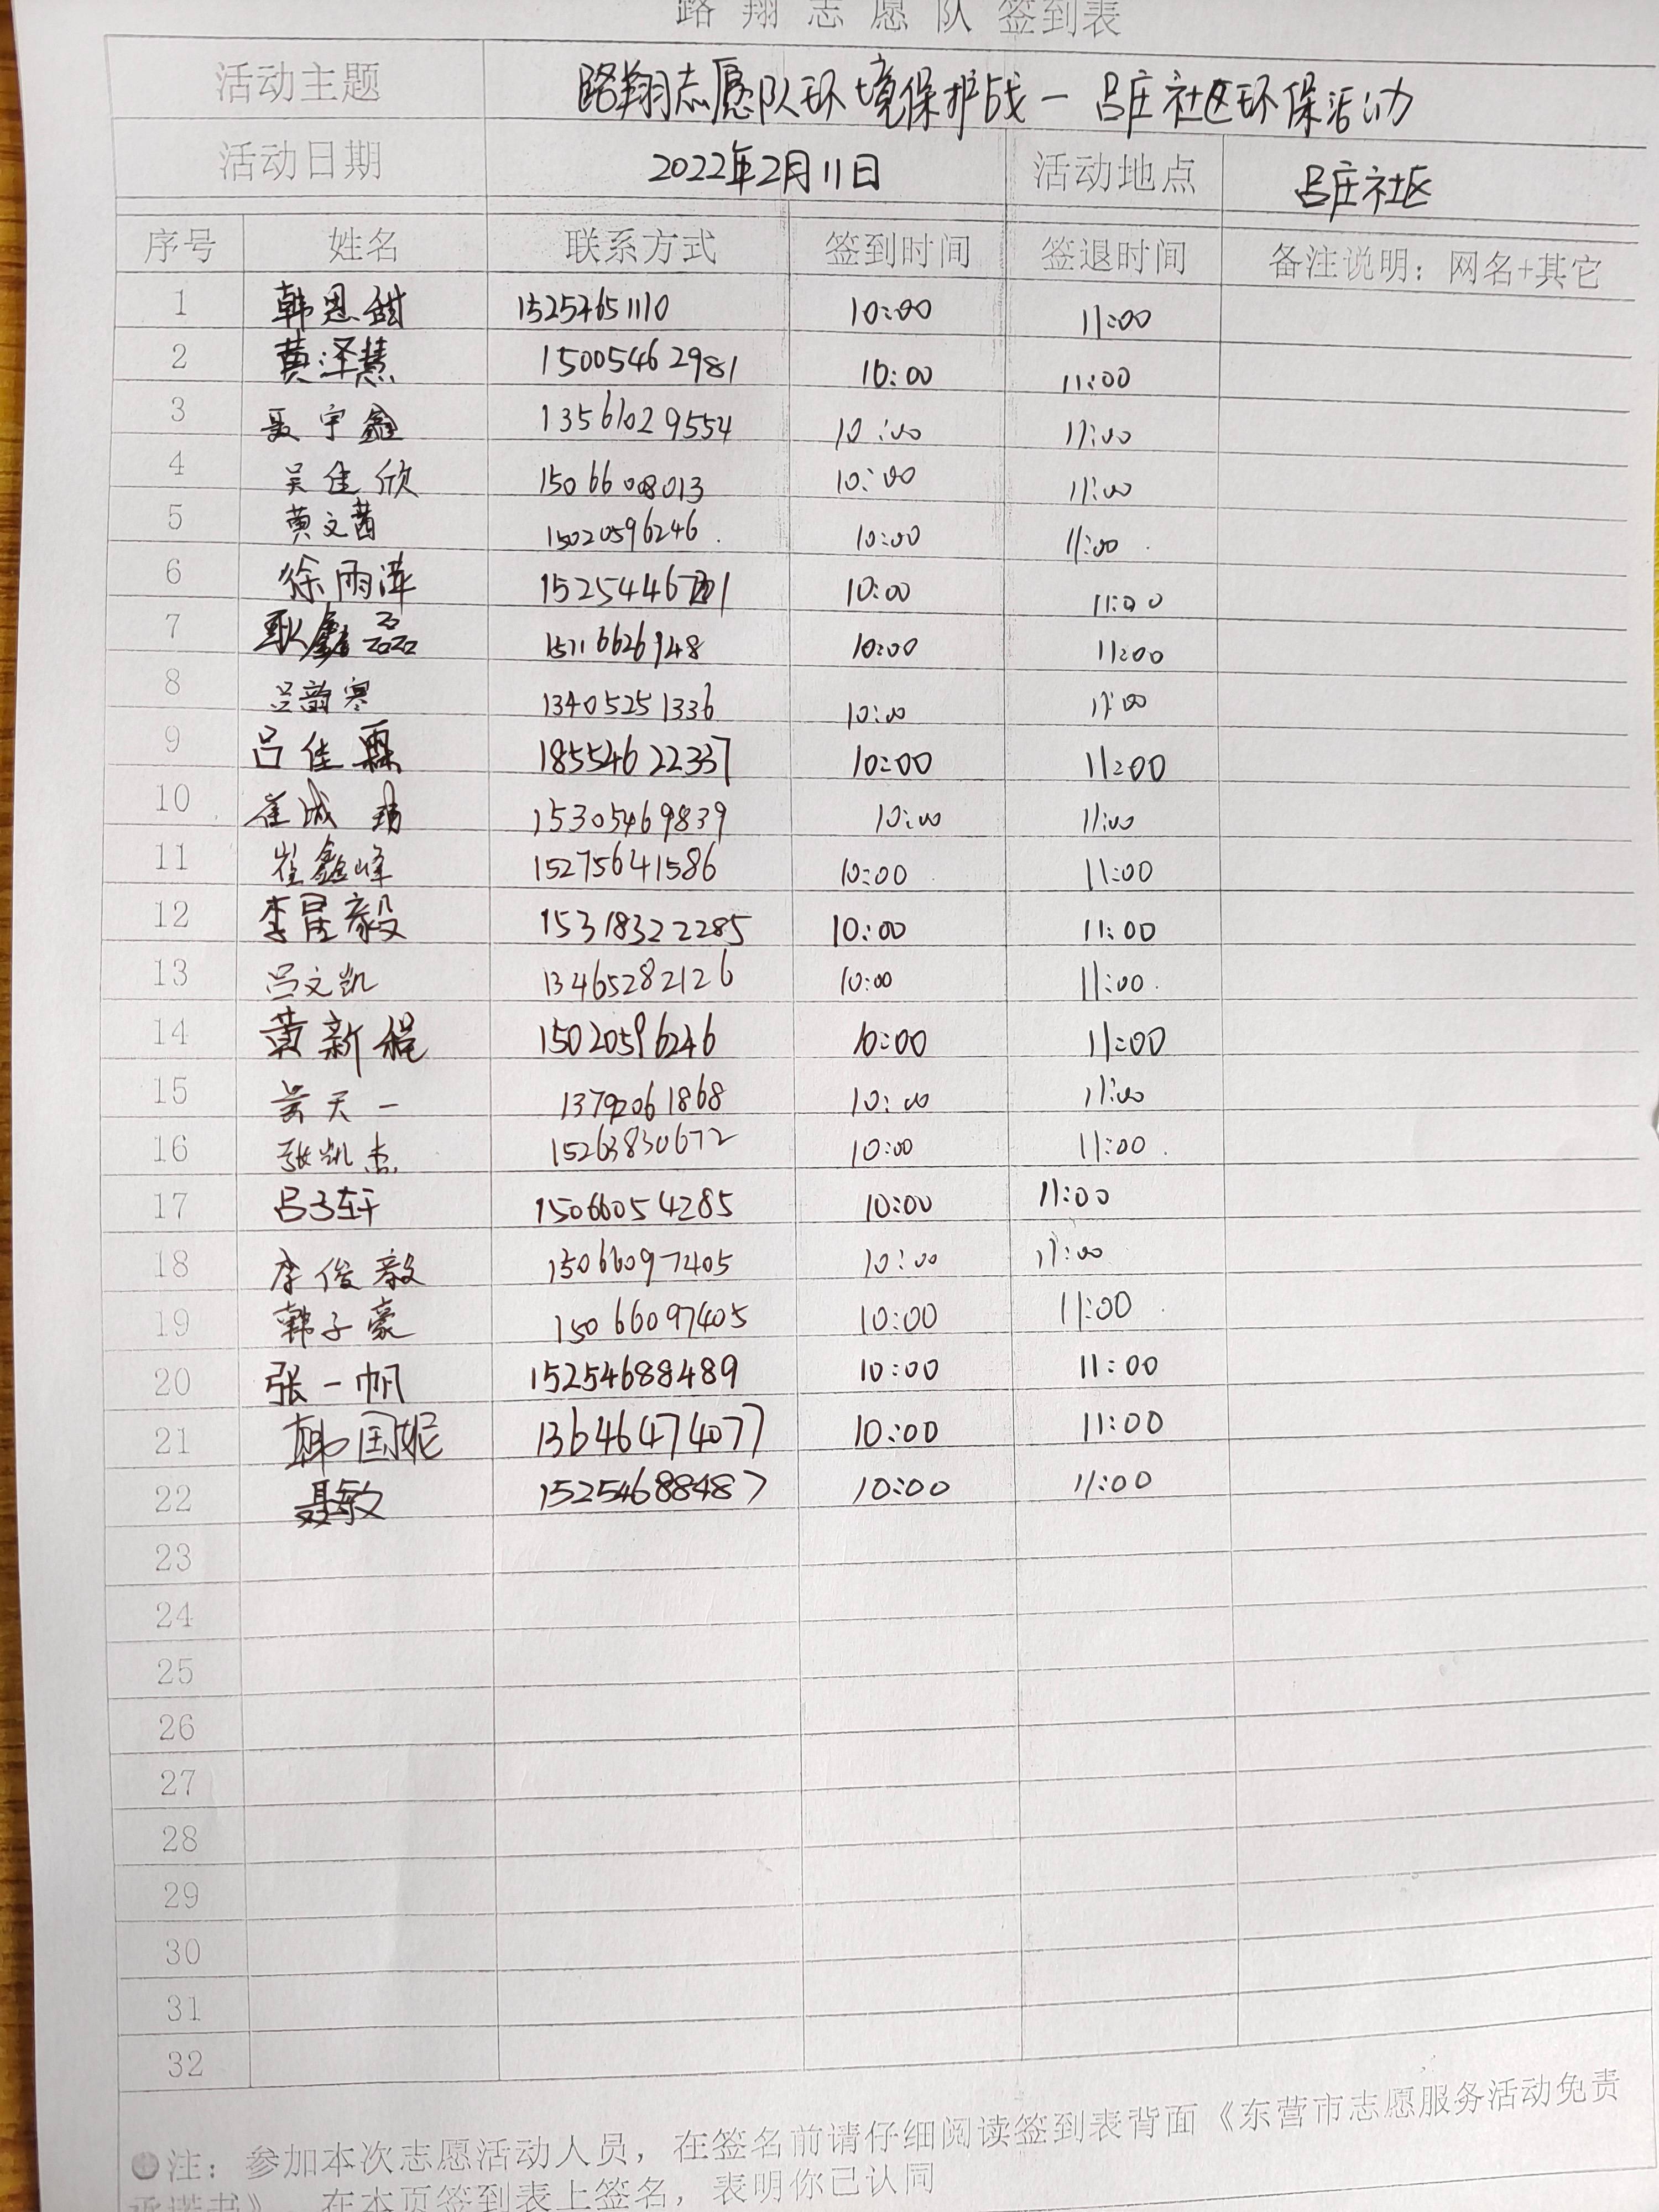 路翔志愿队签到表
活动主题 路翔志愿队环境保护战一吕庄社区环保活动
活动日期 2022年2月11日 活动地点 吕庄社区
序号 姓名 联系方式 签到时间 签退时间 备注说明：网名+其它
1 韩思甜 15254651110 10:00 11:00
2 黄泽慧 15005462981 10:00 11:00
3 聂宇鑫 13561029554 10:00 11:00
4 吴佳欣 15066008013 10:00 11:00
5 黄文茜 15020596246 10:00 11:00
6 徐雨泽 10:00 11:00
7 耿鑫磊 10:00 11:00
8 吕韵寒 13405251336 10:00 11:00
9 吕佳霖 18554622337 10:00 11:00
10 崔城 15305469839 10:00 11:00
11 崔鑫峰 15275641586 10:00 11:00
12 李星毅 15318322285 10:00 11:00
13 吕文凯 13465282126 10:00 11:00
14 黄新 15020596246 10:00 11:00
15 天一 13792061868 10:00 11:00
16 张凯杰 15263830672 10:00 11:00
17 吕子轩 15066054285 10:00 11:00
18 李俊毅 15066097405 10:00 11:00
19 韩子豪 15066097405 10:00 11:00
20 张一帆 15254688489 10:00 11:00
21 韩国妮 13646474077 10:00 11:00
22 聂敏 15254688487 10:00 11:00
23
24
25
26
27
28
29
30
31
32
注：参加本次志愿活动人员，在签名前请仔细阅读签到表背面《东营市志愿服务活动免责
承诺书》，在本页签到表上签名，表明你已认同